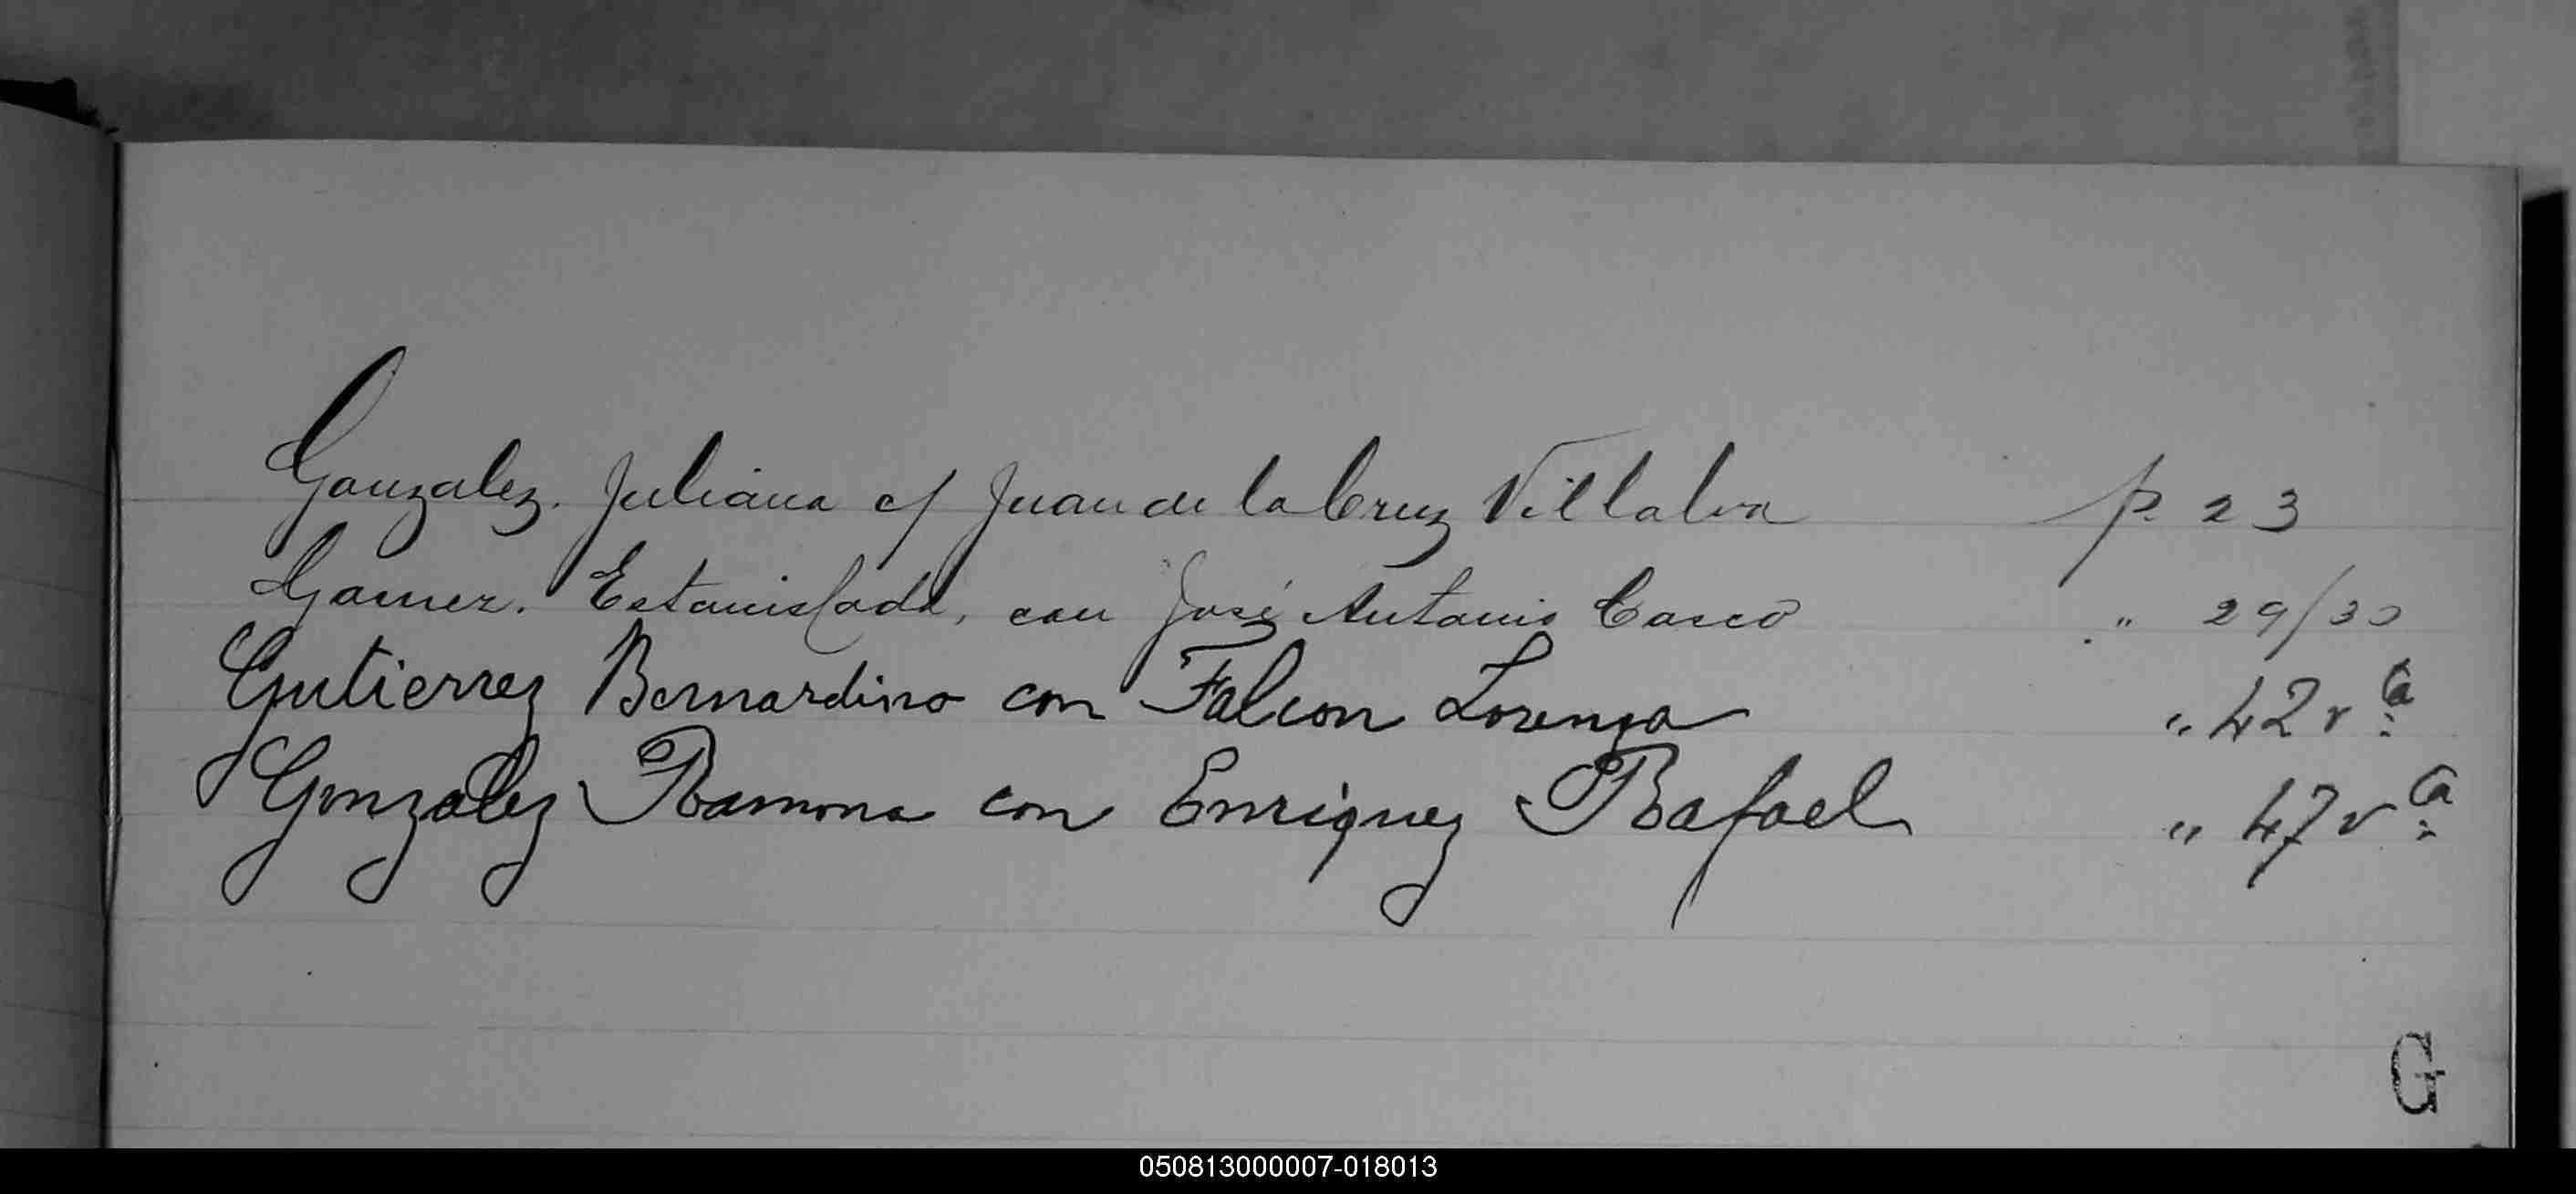 Gonzalez. Juliana c/ Juan de la Cruz Villalva p. 23
Gamez. Estanislada, con José Antonio Casco " 29/30
Gutierrez Bernardino con Falcon Lorenza " 42 v ta.
Gonzalez Ramona con Enriquez Rafael " 47 v ta.
G
050813000007-018013